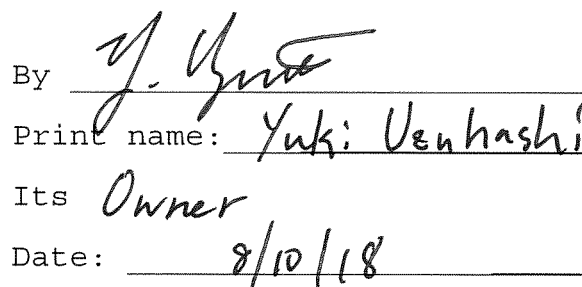 By
Print name: Yuki Uzuhashi
Its Owner
Date: 8/10/18